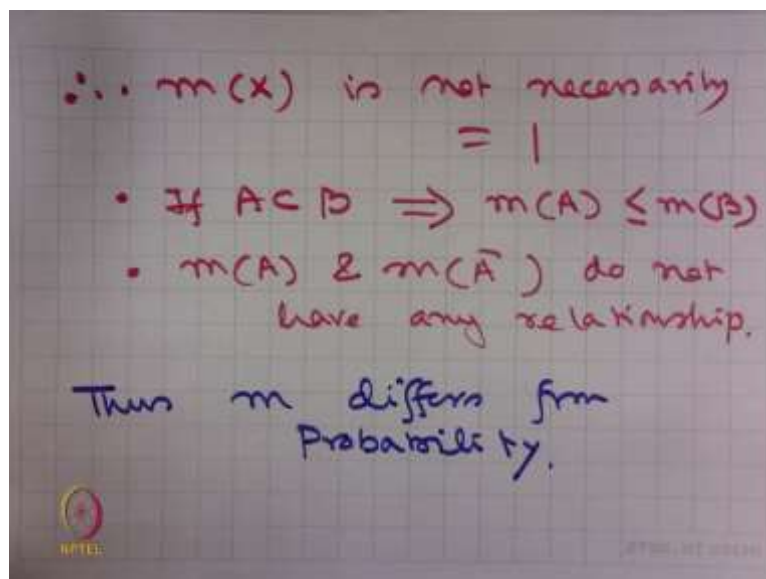 ∴ m(X) is not necessarily
= 1
• If A ⊂ B ⇒ m(A) ≤ m(B)
• m(A) & m(Ā) do not
have any relationship.
Thus m differs from
Probability.
NPTEL